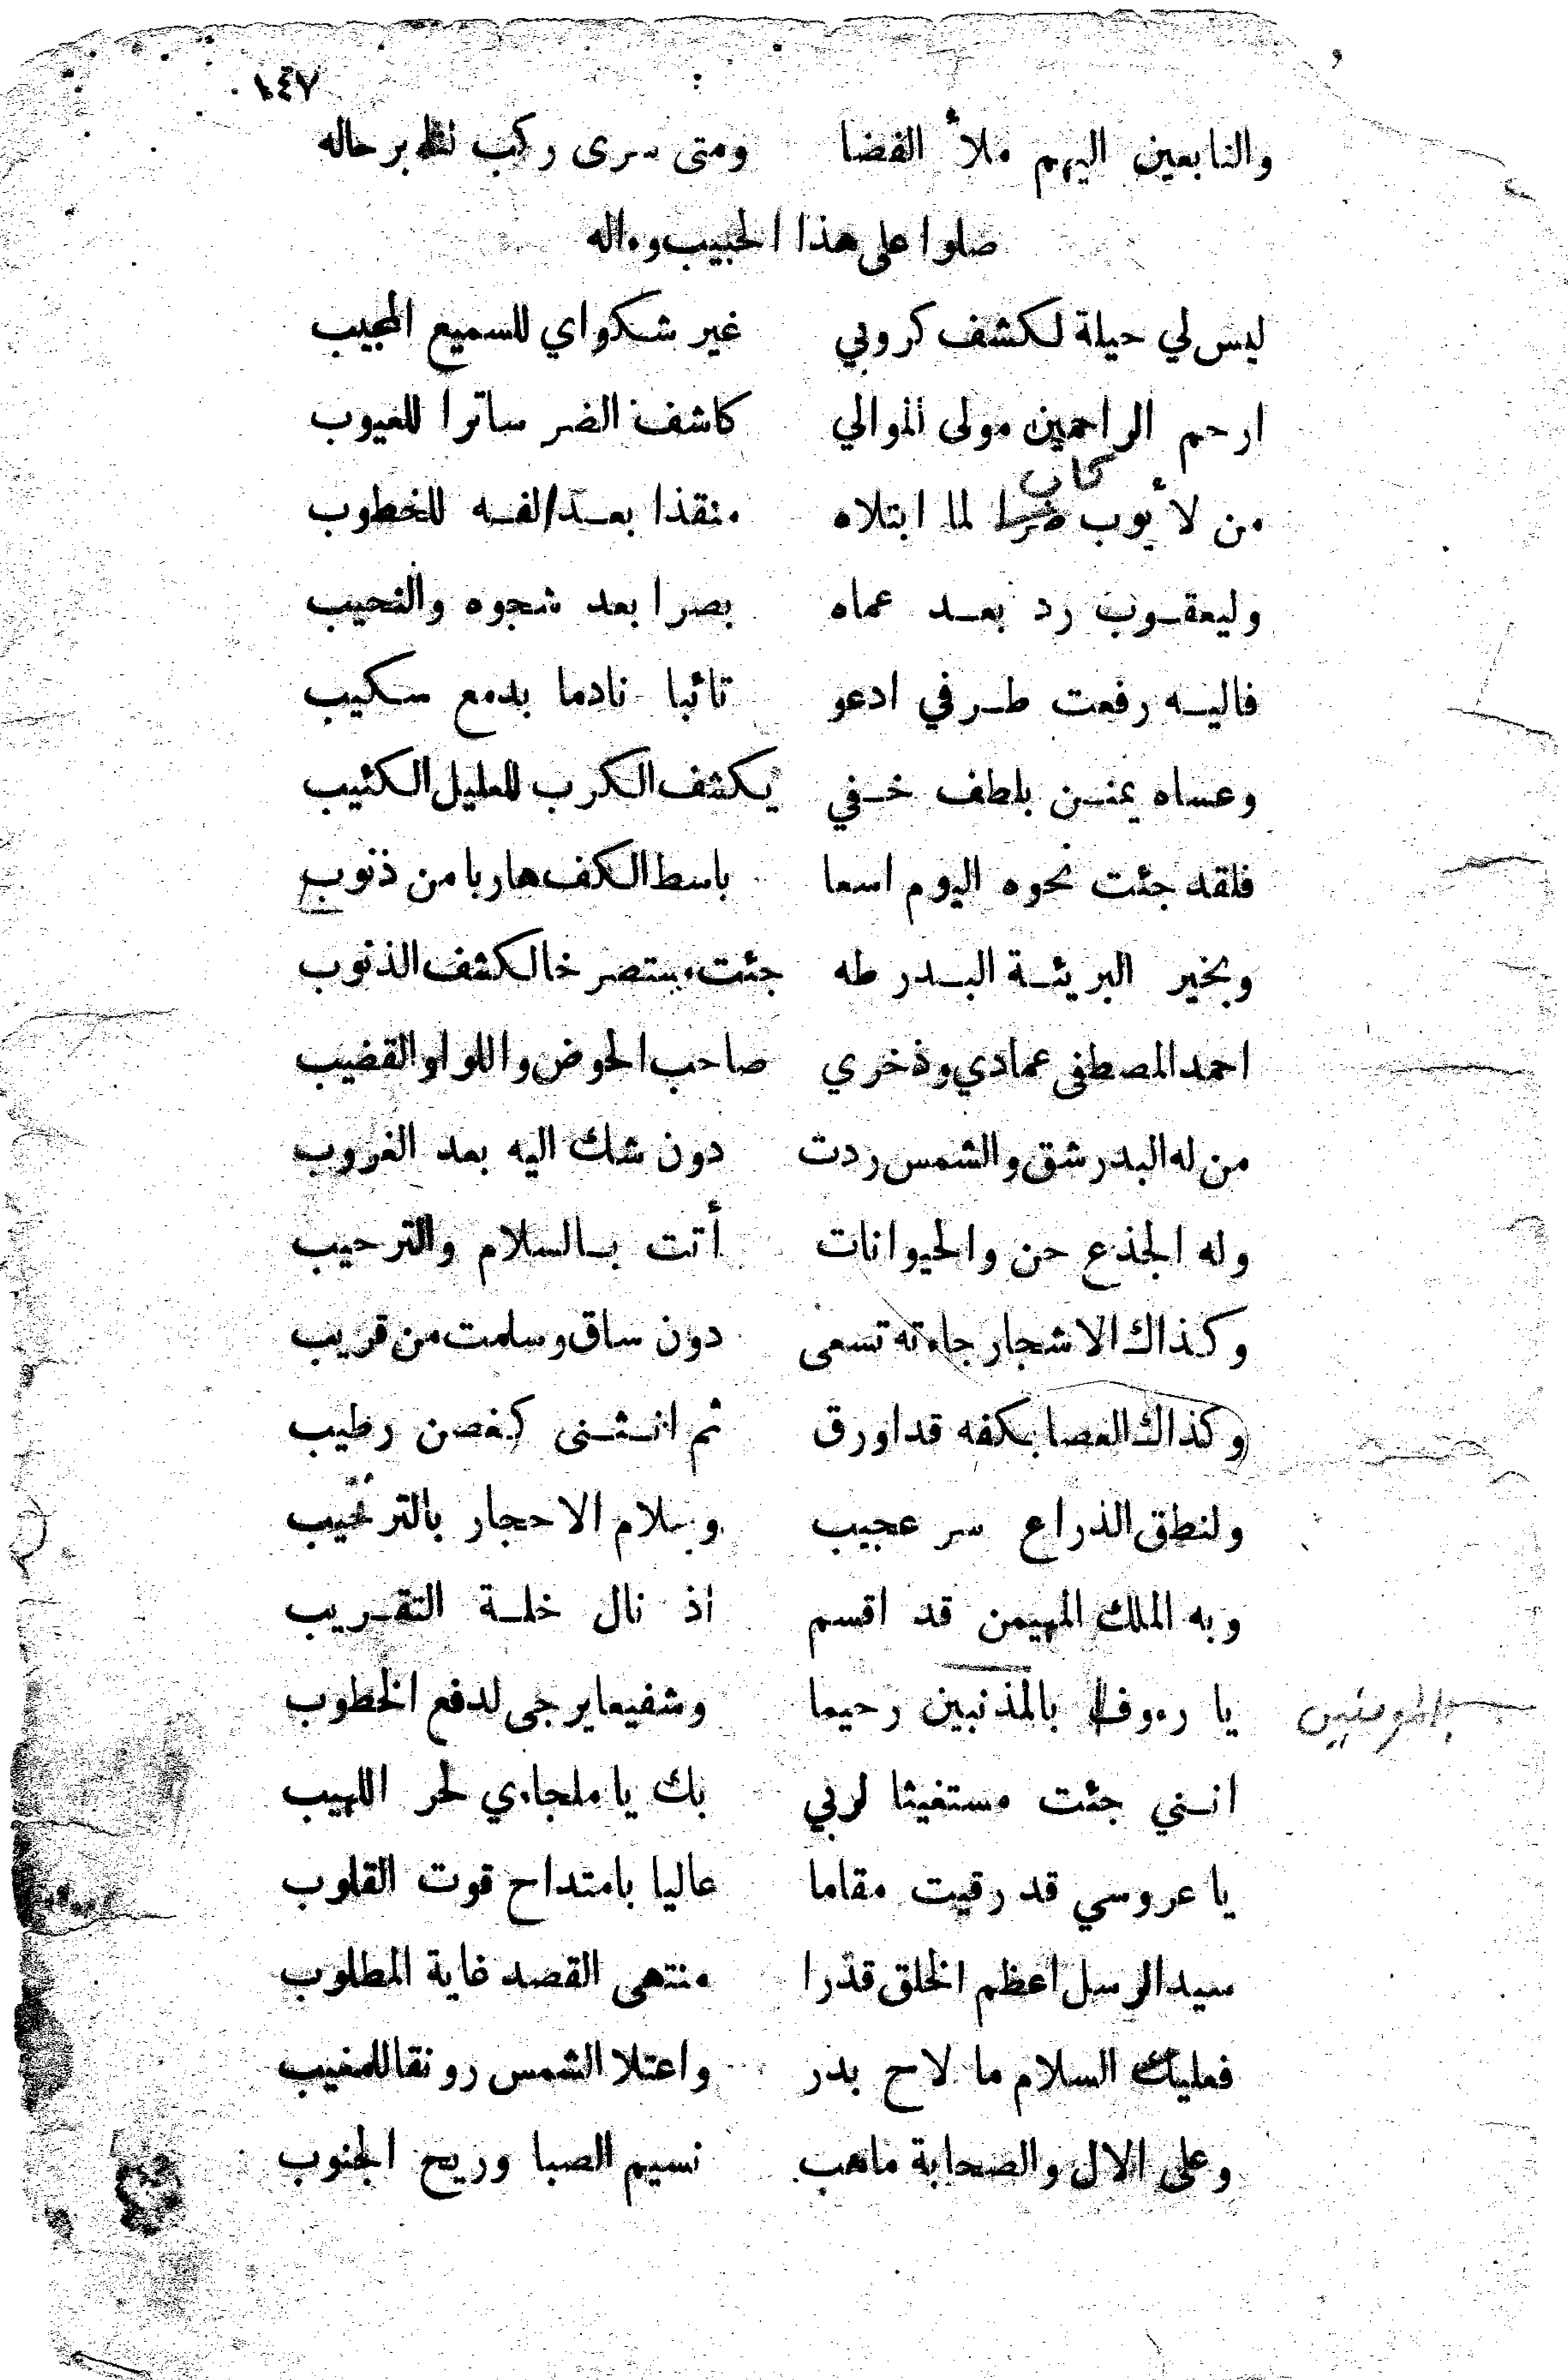 ١٤٧
والتابعين اليهم ملأ الفضا ومتى سرى ركب له برحاله
صلوا على هذا الحبيب وءاله
ليس لي حيلة لكشف كروبي غير شكواي للسميع المجيب
ارحم الراحمين مولى الموالي كاشف الضر ساترا للعيوب
كان
من لأيوب ضرا لما ابتلاه منقذا بعد الفه للخطوب
وليعقوب رد بعد عماه بصرا بعد شجوه والنحيب
فاليه رفعت طرفي ادعو تائبا نادما بدمع سكيب
وعساه يمنن بلطف خفي يكشف الكرب للعليل الكئيب
فلقد جئت نحوه اليوم اسعا باسط الكف هاربا من ذنوب
وبخير البريئة البدر طه جئت مستصرخا لكشف الذنوب
احمد المصطفى عمادي وذخري صاحب الحوض واللوا والقضيب
من له البدر شق والشمس ردت دون شك اليه بعد الغروب
وله الجذع حن والحيوانات أتت بالسلام والترحيب
وكذاك الاشجار جاءته تسعى دون ساق وسلمت من قريب
وكذاك العصا بكفه قد اورق ثم انثنى كغصن رطيب
ولنطق الذراع سر عجيب وسلام الاحجار بالترغيب
وبه الملك المهيمن قد اقسم اذ نال خلة التقريب
يا رءوفا بالمذنبين رحيما وشفيعا يرجى لدفع الخطوب
بالمومنين
انني جئت مستغيثا لربي بك يا ملجاءي لحر اللهيب
يا عروسي قد رقيت مقاما عاليا بامتداح قوت القلوب
سيد الرسل اعظم الخلق قدرا منتهى القصد غاية المطلوب
فعليك السلام ما لاح بدر واعتلا الشمس رونقا للمغيب
وعلى الال والصحابة ماهب نسيم الصبا وريح الجنوب